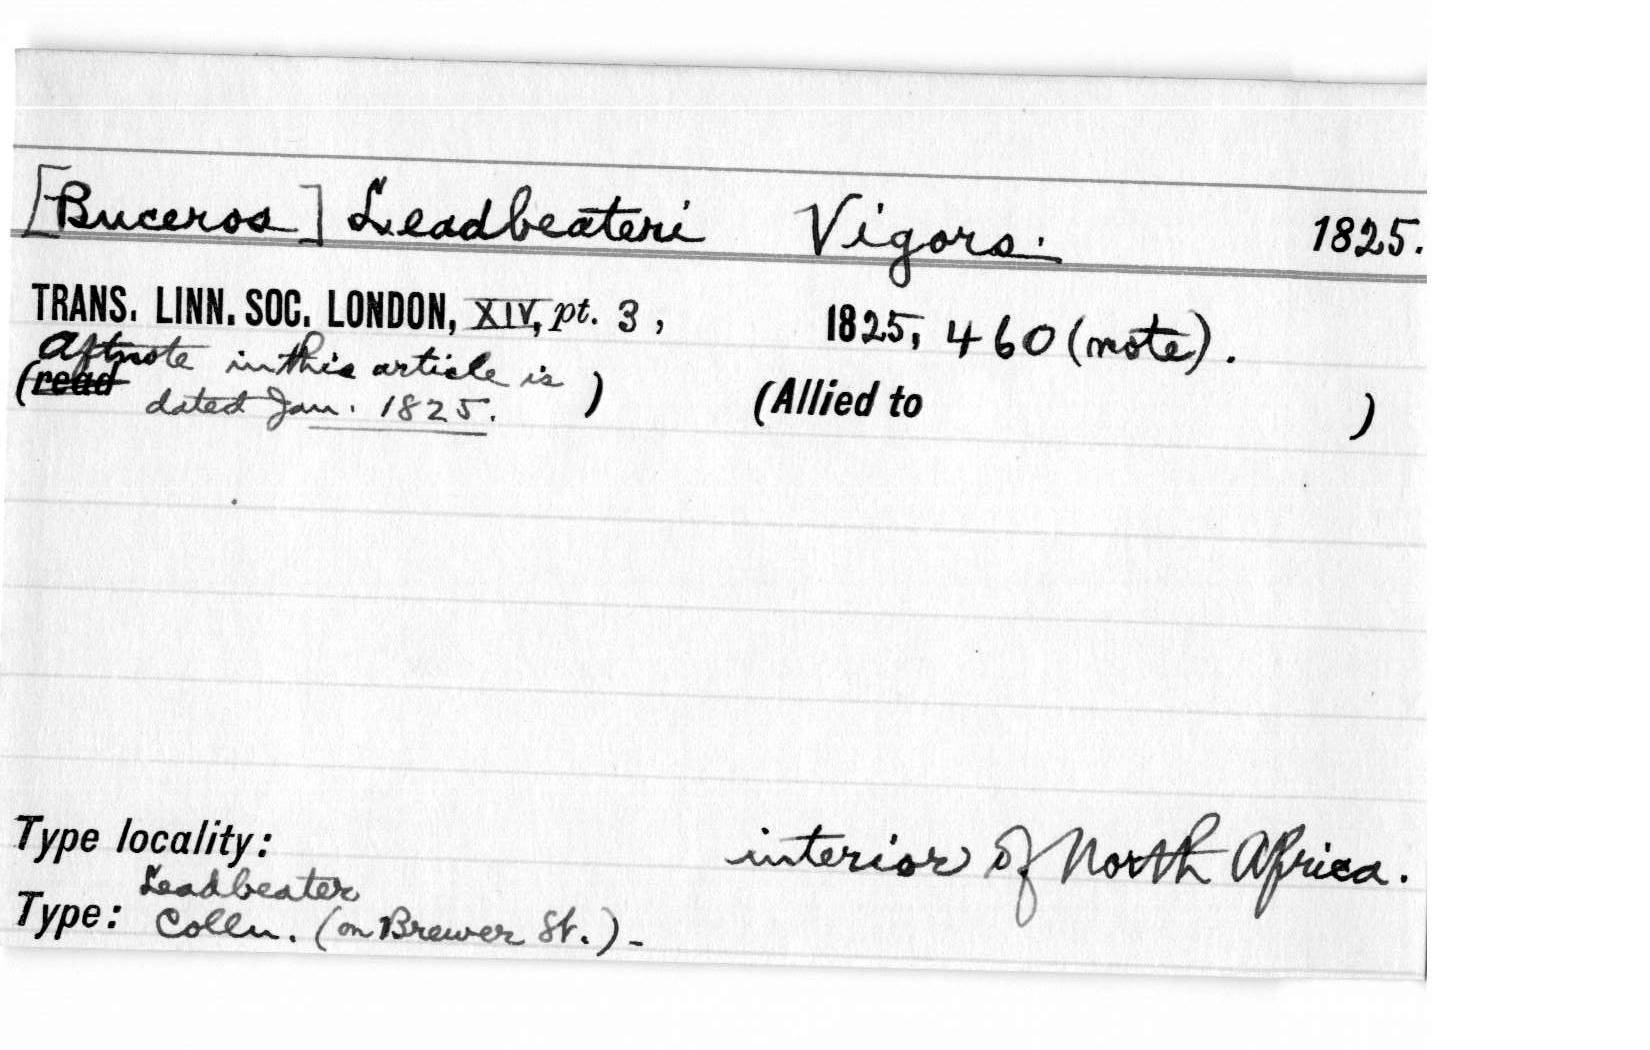 [Buceros] Leadbeateri Vigors. 1825.
TRANS. LINN. SOC. LONDON, XIV, pt. 3, 1825, 460 (note).
A ftnote in this article is
(read dated Jan. 1825. ) (Allied to )
Type locality: interior of North Africa.
Leadbeater
Type: Colln. (on Brewer St.) -